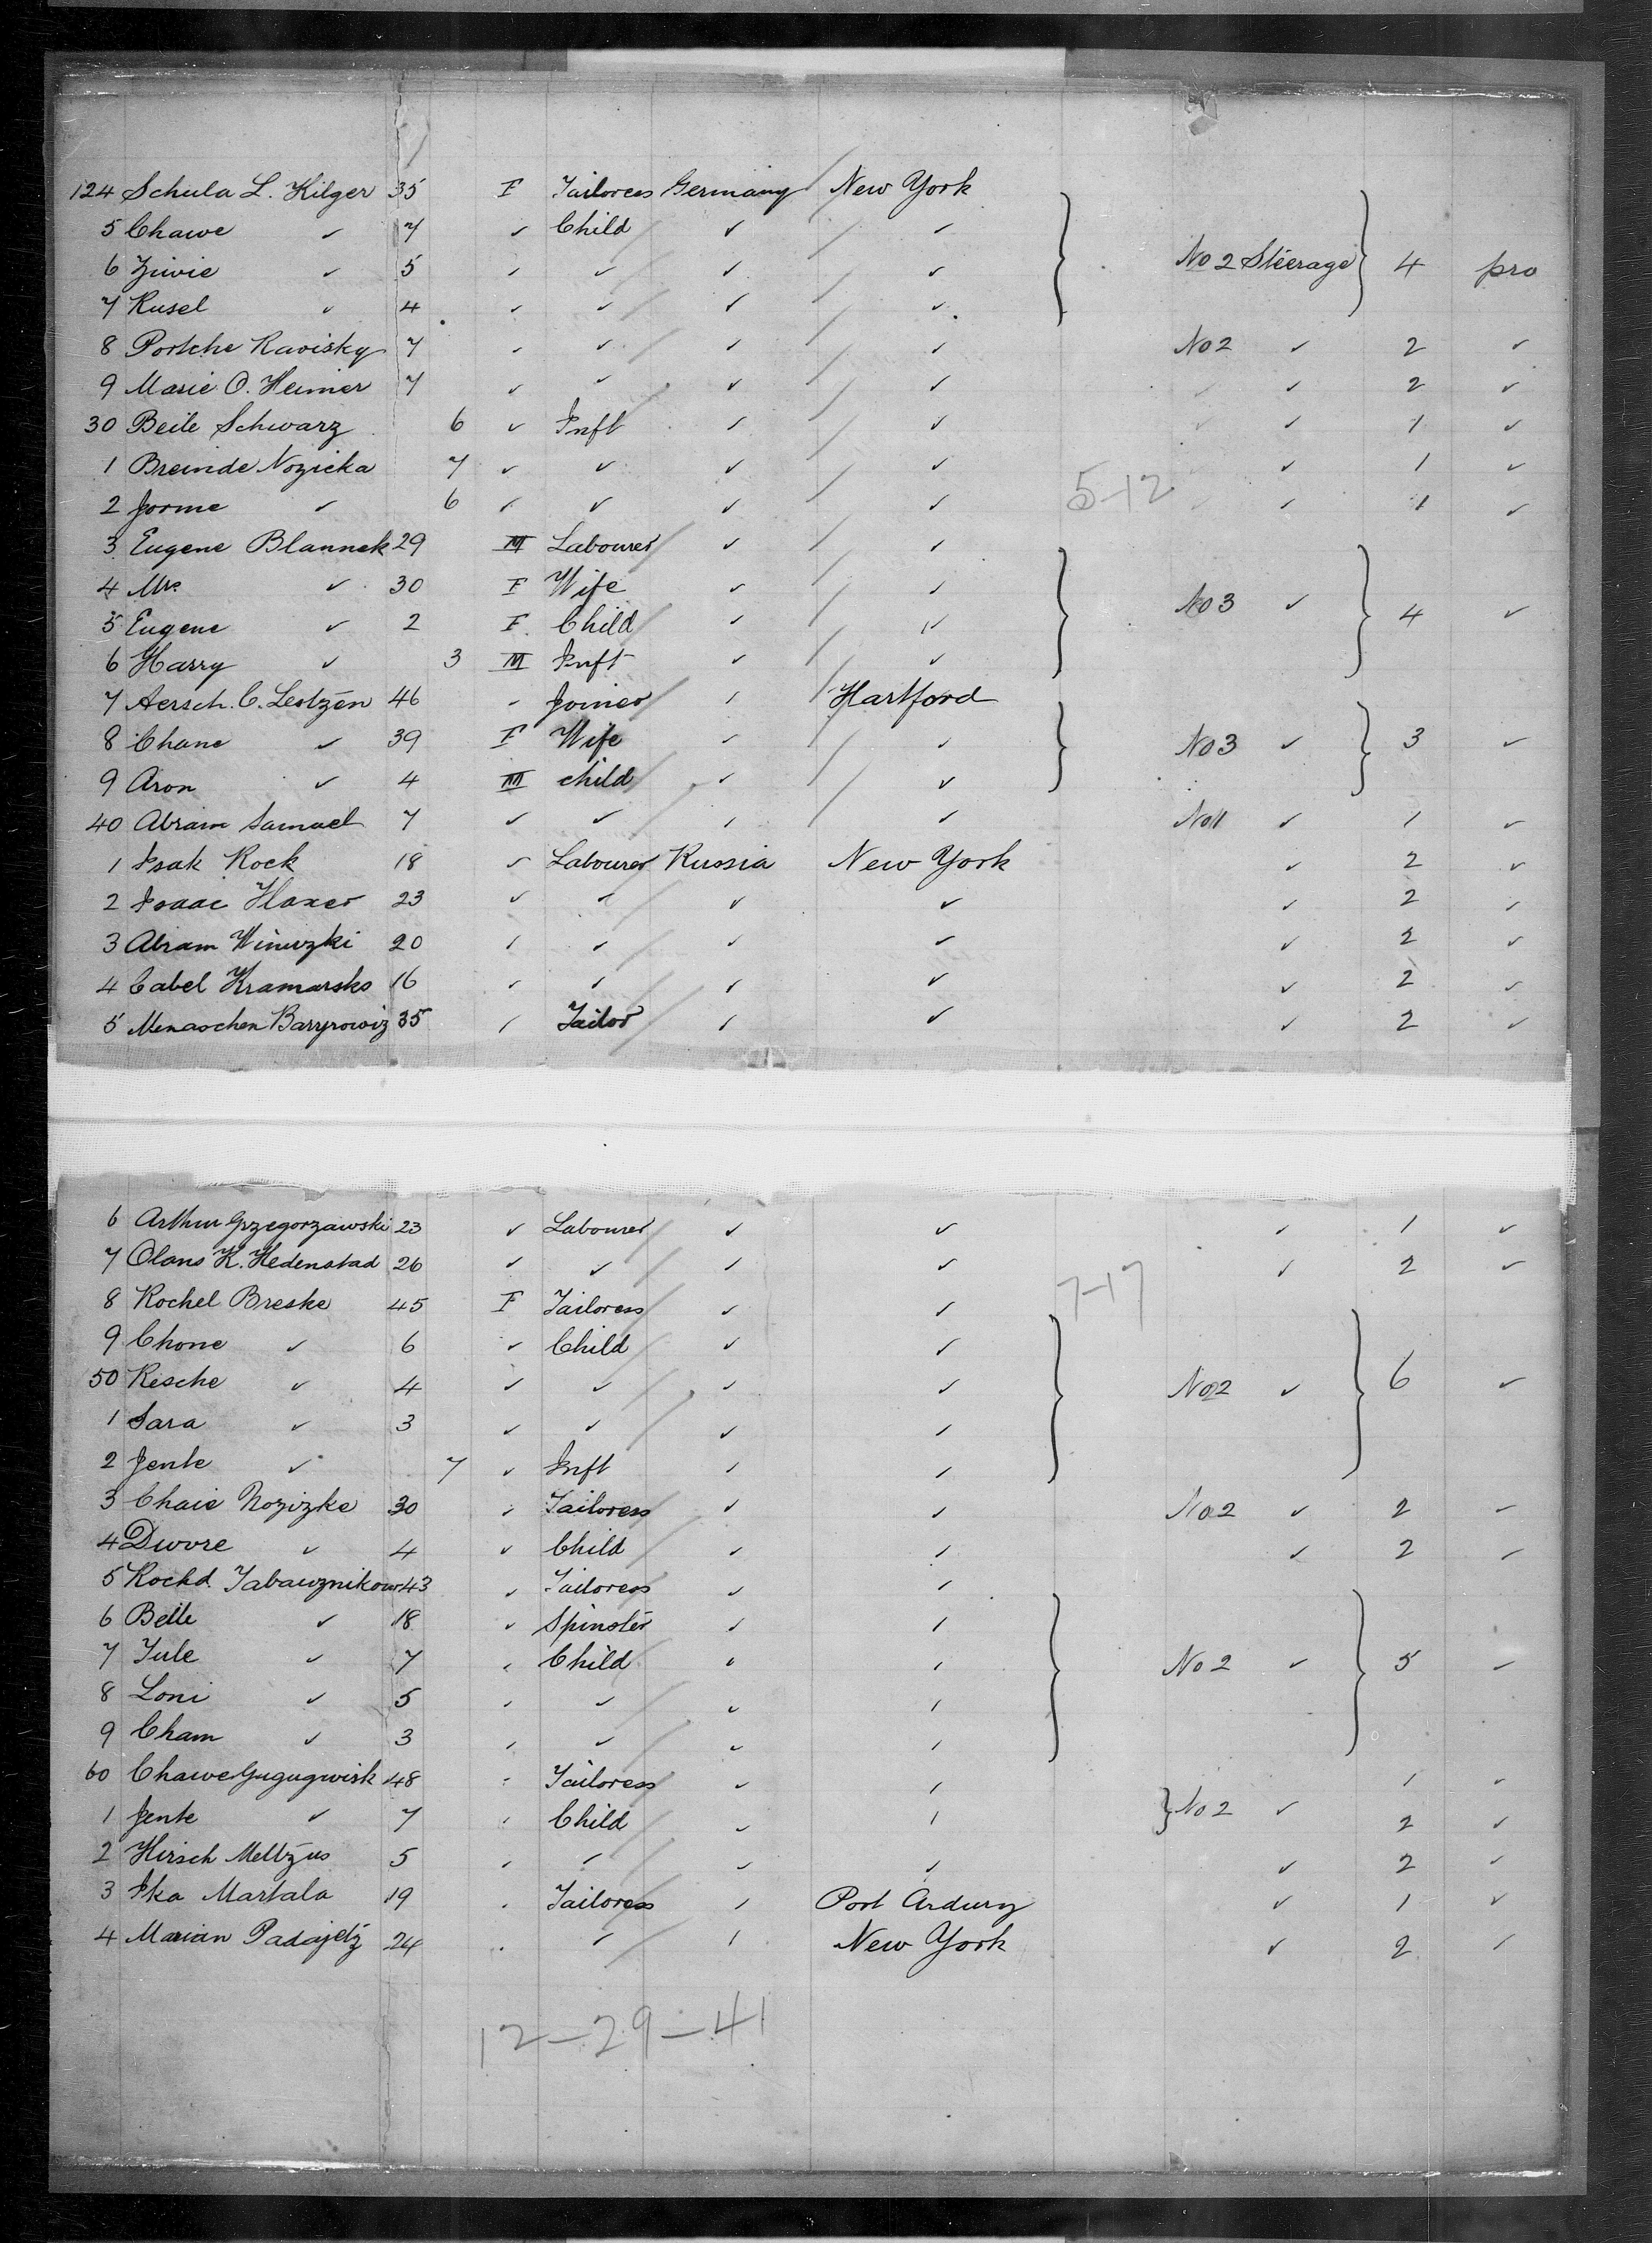 124 Schula L. Kilger 35 F Tailoress Germany New York
5 Chawe ✓ 7 ✓ Child ✓ ✓
6 Ziwie ✓ 5 ✓ ✓ ✓ ✓ No 2 Steerage 4 pro
7 Rusel ✓ 4 ✓ ✓ ✓ ✓
8 Portche Ravisky 7 ✓ ✓ ✓ ✓ No 2 ✓ 2 ✓
9 Marie O. Heimer 7 ✓ ✓ ✓ ✓ ✓ ✓ 2 ✓
30 Beile Schwarz 6 ✓ Inft ✓ ✓ ✓ ✓ 1 ✓
1 Breinde Nozicka 7 ✓ ✓ ✓ ✓ ✓ 1 ✓
5-12
2 Jorme ✓ 6 ✓ ✓ ✓ ✓ ✓ ✓ 1 ✓
3 Eugene Blannek 29 M Labourer ✓ ✓
4 Mrs. ✓ 30 F Wife ✓ ✓ No 3 ✓ 4 ✓
5 Eugene ✓ 2 F Child ✓ ✓
6 Harry ✓ 3 M Inft ✓ ✓
7 Aersch. C. Lestzen 46 ✓ Joiner ✓ Hartford
8 Chane ✓ 39 F Wife ✓ ✓ No 3 ✓ 3 ✓
9 Aron ✓ 4 M child ✓ ✓
40 Abram Samuel 7 ✓ ✓ ✓ ✓ No 1 ✓ 1 ✓
1 Isak Rock 18 ✓ Labourer Russia New York ✓ 2 ✓
2 Isaac Haxer 23 ✓ ✓ ✓ ✓ ✓ 2 ✓
3 Abram Winuzki 20 ✓ ✓ ✓ ✓ ✓ 2 ✓
4 Cabel Kramarsko 16 ✓ ✓ ✓ ✓ ✓ 2 ✓
5 Menaschen Baryrowiz 35 ✓ Tailor ✓ ✓ ✓ 2 ✓
6 Arthur Grzegorzawski 23 ✓ Labourer ✓ ✓ ✓ 1 ✓
7 Olans K. Hedenstad 26 ✓ ✓ ✓ ✓ ✓ 2 ✓
7-17
8 Rochel Breske 45 F Tailoress ✓ ✓
9 Chone ✓ 6 ✓ Child ✓ ✓
50 Resche ✓ 4 ✓ ✓ ✓ ✓ No 2 ✓ 6 ✓
1 Sara ✓ 3 ✓ ✓ ✓ ✓
2 Jente ✓ 7 ✓ Inft ✓ ✓
3 Chaie Nozizke 30 ✓ Tailoress ✓ ✓ No 2 ✓ 2 ✓
4 Dwore ✓ 4 ✓ Child ✓ ✓ ✓ 2 ✓
5 Rochd. Tabawznikow 43 ✓ Tailoress ✓ ✓
6 Beile ✓ 18 ✓ Spinster ✓ ✓
7 Jule ✓ 7 ✓ Child ✓ ✓ No 2 ✓ 5 ✓
8 Loni ✓ 5 ✓ ✓ ✓ ✓
9 Cham ✓ 3 ✓ ✓ ✓ ✓
60 Chawe Gugugwisk 48 ✓ Tailoress ✓ ✓ 1 ✓
1 Jente ✓ 7 ✓ Child ✓ ✓ No 2 ✓ 2 ✓
2 Hirsch Meltzus 5 ✓ ✓ ✓ ✓ ✓ 2 ✓
3 Ika Martala 19 ✓ Tailoress ✓ Port Ardury ✓ 1 ✓
4 Marian Padajetz 24 ✓ ✓ ✓ New York ✓ 2 ✓
12-29-41